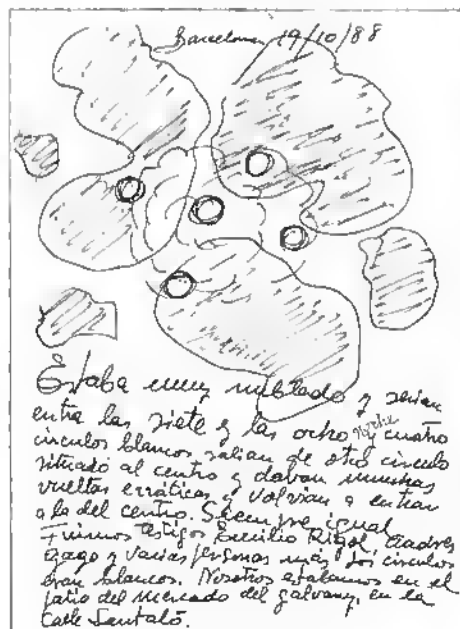 Barcelona 19/10/88
Estaba muy nublado y serian
entra las siete y las ocho noche y cuatro
circulos blancos salian de otro circulo
situado al centro y davan muchas
vueltas erráticas y volvian a entrar
a la del centro. Siempre igual
Fuimos testigos Emilio Rigol, Andres
y varias personas más. Los circulos
eran blancos. Nosotros estabamos en el
patio del mercado del galvany, en la
Calle Santaló.